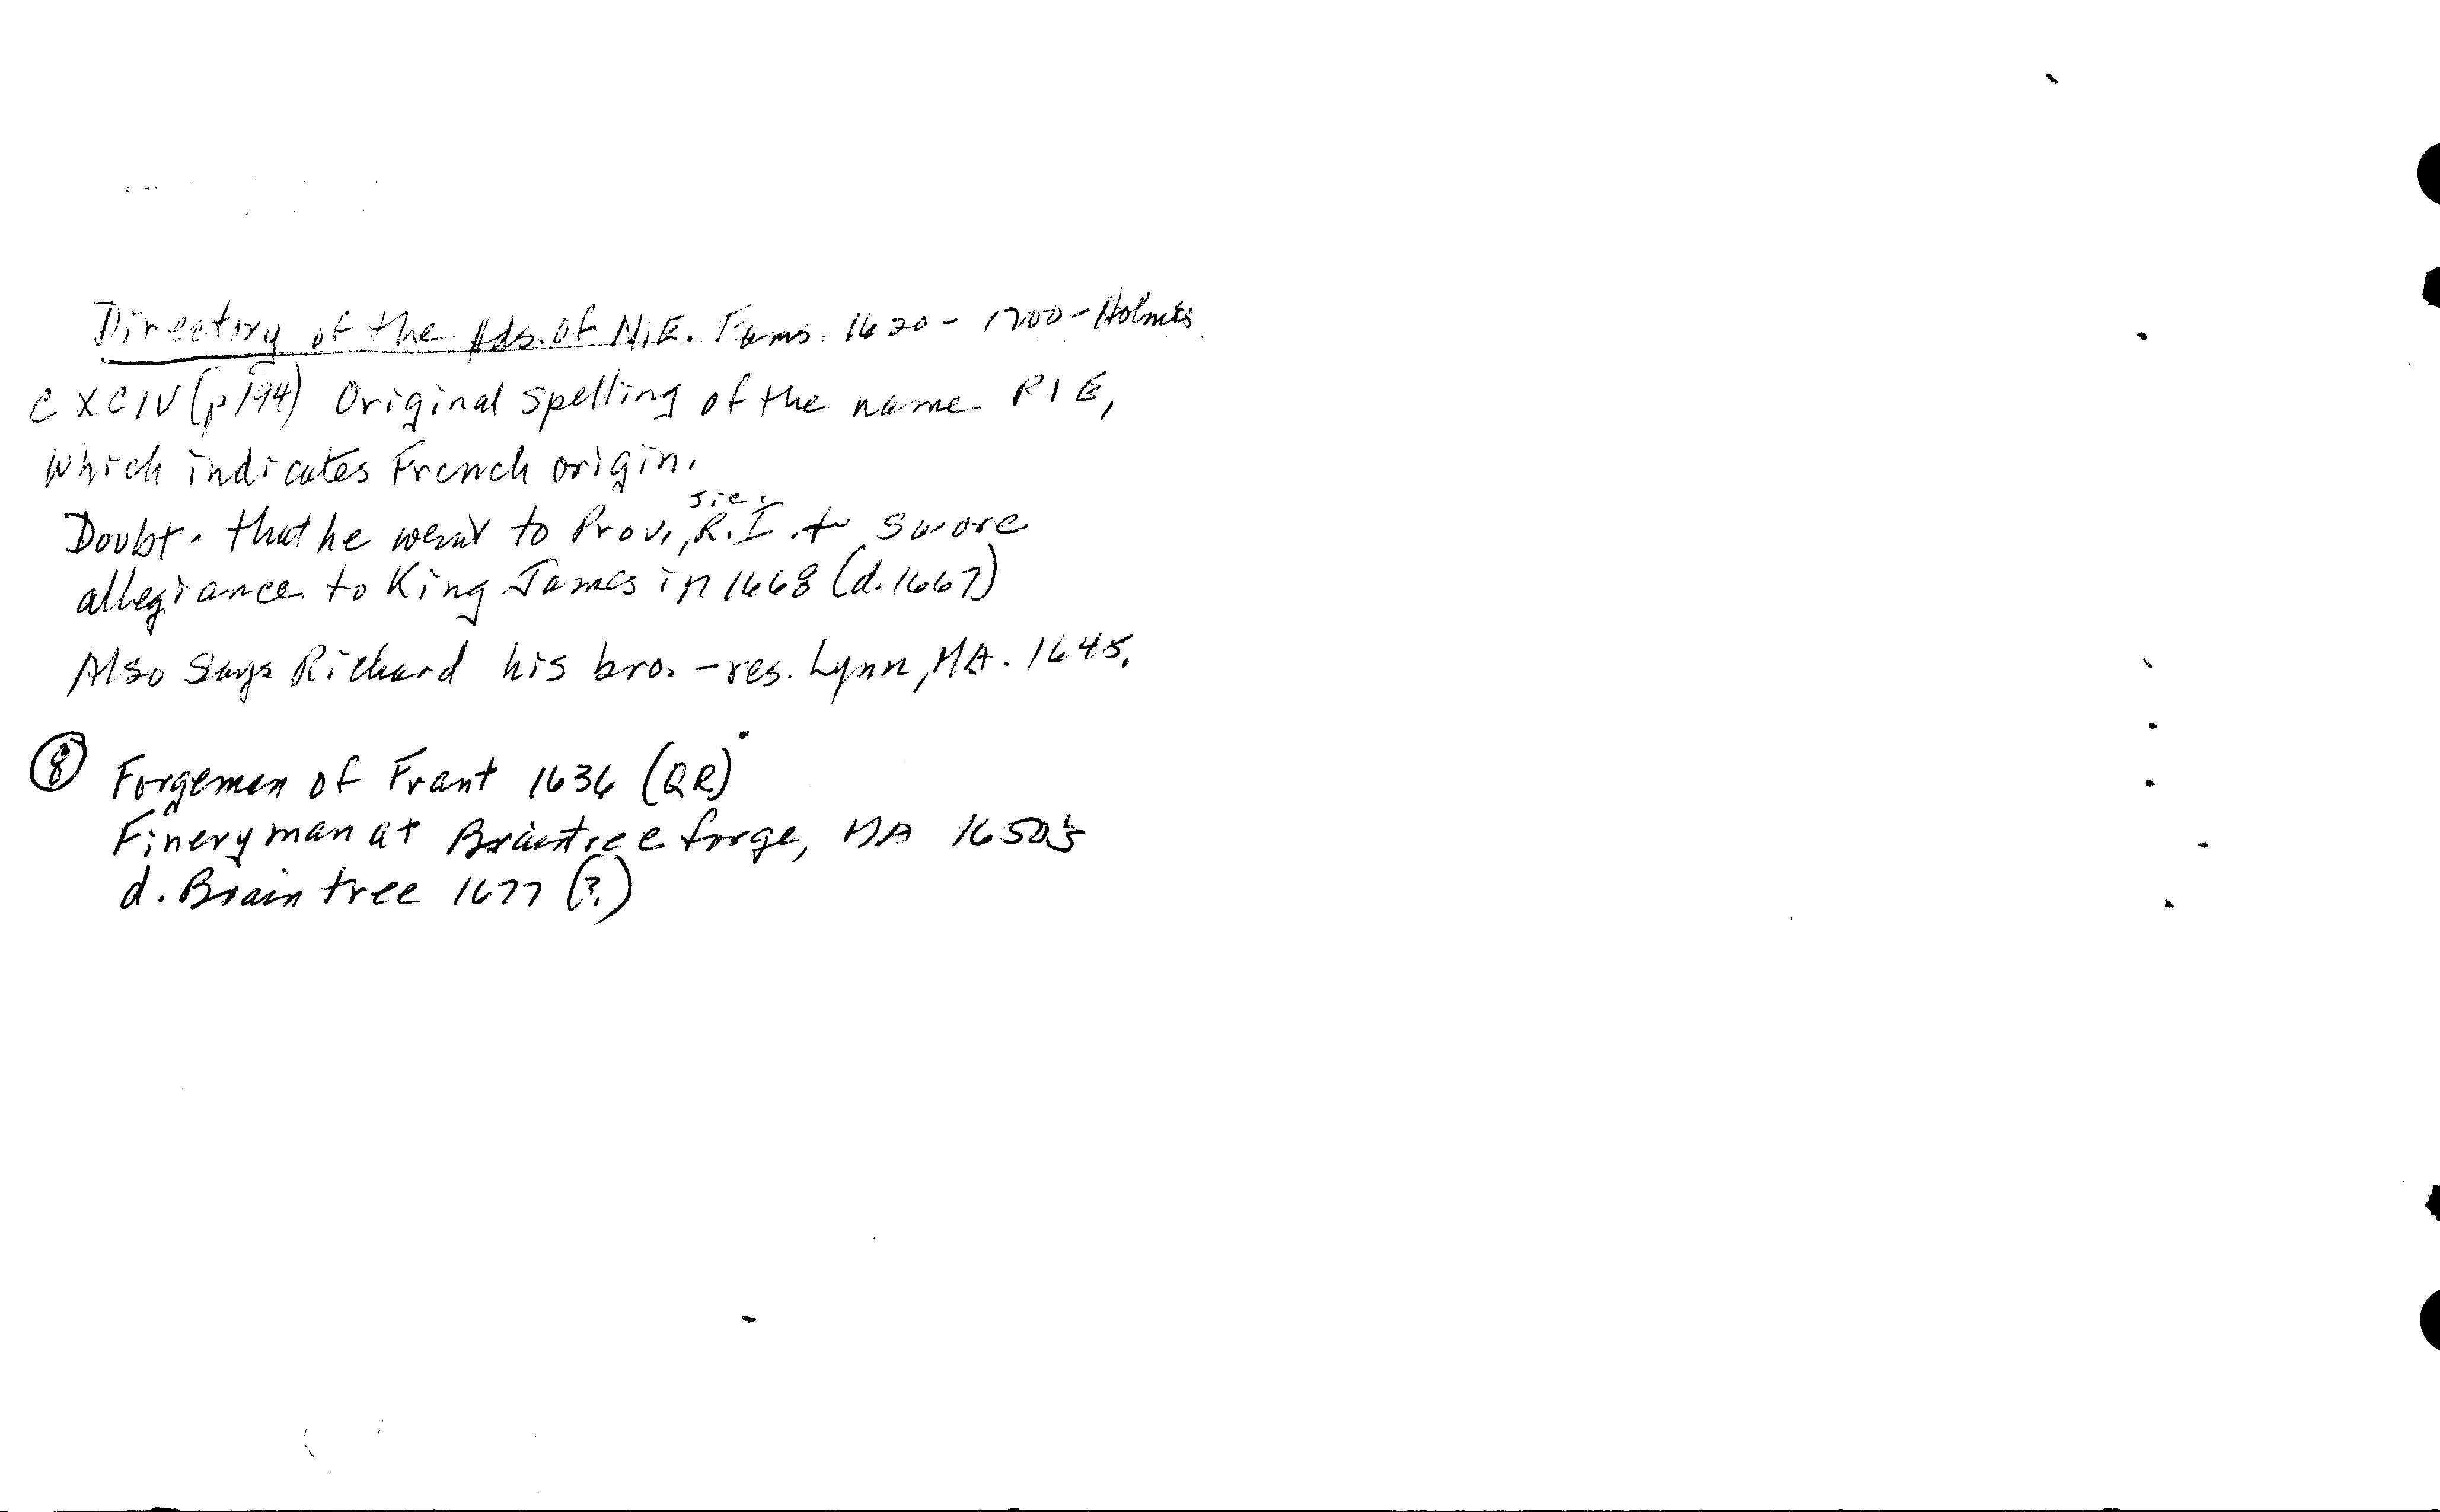 Directory of the Ads. of N.E. Fams. 1620 - 1700 - Holmes
CXCIV (p 194) Original spelling of the name RIE,
Which indicates French origin.
sic.
Doubt. that he went to Prov., R.I. + swore
allegiance to King James in 1668 (d. 1667)
Also says Richard his bro. - res. Lynn, MA. 1645.
8 Forgeman of Frant 1636 (QR)
Fineryman at Braintree forge, MA 1650's
d. Braintree 1677 (?)